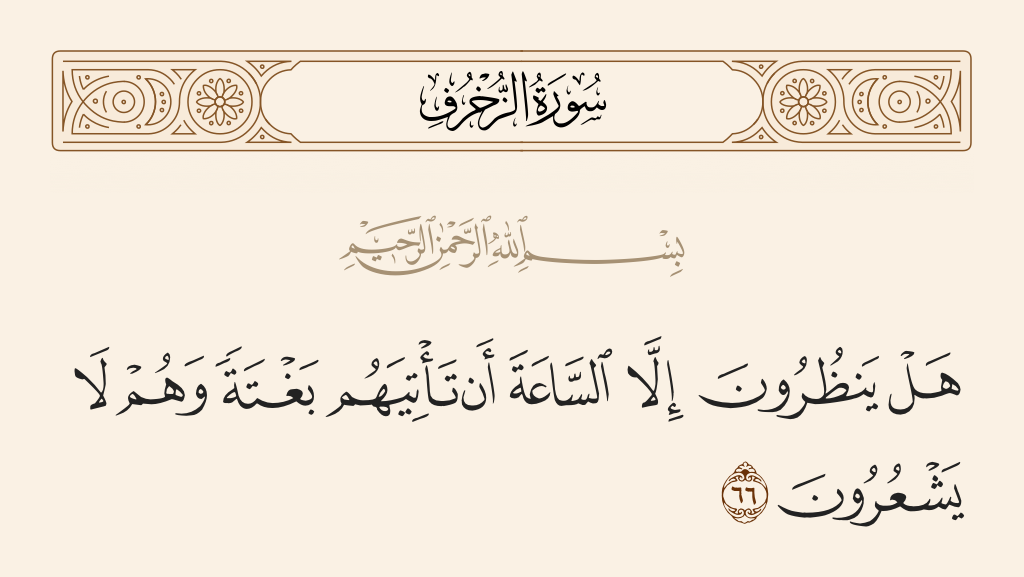 سُورَةُ الزُّخْرُفِ
بِسْمِ ٱللَّهِ ٱلرَّحْمَٰنِ ٱلرَّحِيمِ
هَلْ يَنظُرُونَ إِلَّا ٱلسَّاعَةَ أَن تَأْتِيَهُم بَغْتَةً وَهُمْ لَا
يَشْعُرُونَ ٦٦